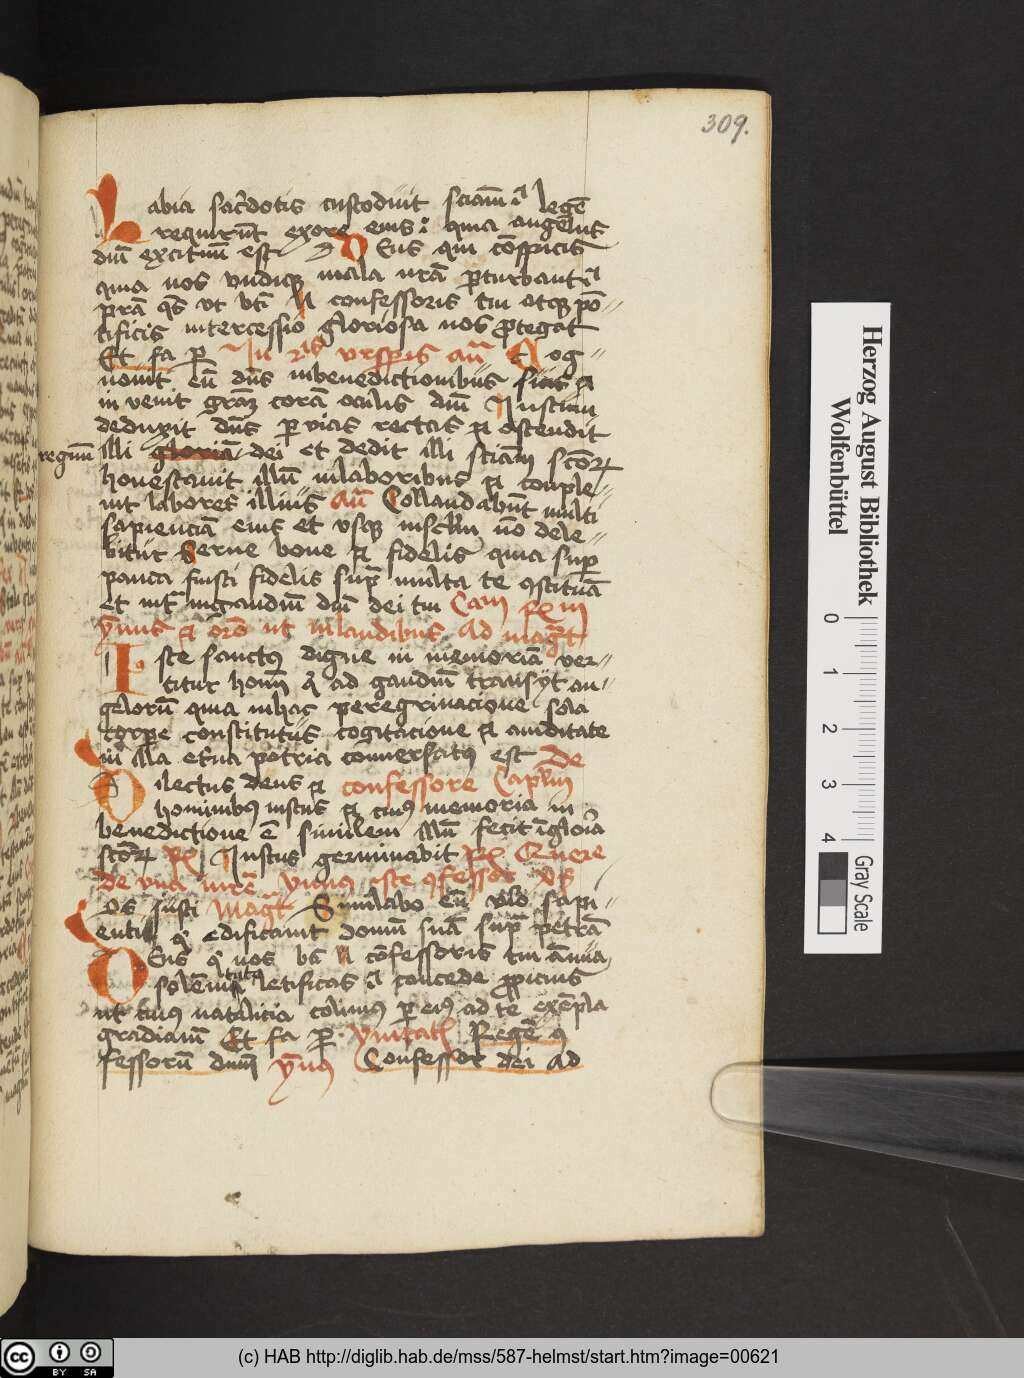 309.
Labia sac̄dotis custodiūt sciam̄ ⁊ legē
requirūt exore eius : quia angelus
dūi exercituū est Deus qui cōspicis
quia nos vndiqꝫ mala nrā ꝑturbant ⁊
prā qs̄ vt bti N confessoris tui atqꝫ pō
tificis intercessio gloriosa nos ꝓtegat
Et fa ꝑ In vesꝑis añ Cog
nouit eū dūs inbenedictionibus suis ⁊
in venit grām corā oculis dūi Iustum
deduxit dūs ꝑ vias rectas ⁊ ostendit
regnū illi gloriā dei et dedit illi sciam̄ scōꝝ
honestauit illū inlaboribus ⁊ comple
uit labores illius añ Collaudabūt multi
sapienciā eius et vsqꝫ insclm̄ nō dele
bitur Serue bone ⁊ fidelis quia suꝑ
pauca fuisti fidelis supͣ multa te ꝯstituā
et int̄ ingaudiū dūi dei tui Cam
ymus ⁊ ut inlaudibus Ad magt̄
Iste sanctus digne in memoriā ver
titur hoīm qͥ ad gaudiū transijt an
gelorū quia inhac peregrinacione solo
corpe constitutus cogitacione ⁊ auiditate
in illa et̄na patria conuersatus est De
Dilectus deus ⁊ confessore Caplm̄
hominibus inctus ⁊ cuiꝰ memoria in
benedictione ē similem illū fecit ī gloria
scōꝝ Iustus germinabit Quere
de vna ymnus iste ꝯfessor
Os iusti Magt̄ Similabo eū viro sapi
enti qͥ edificauit domū suā supͣ petrā
Deus qͥ nos bti N cōfessoris tui ānua
solēnitate letificas ⁊ concede ꝓpicius
ut cuius natalicia colimus ꝑ eiꝰ ad te exēpla
gradiamur Et fa ꝑ Inuitat Regē ꝯ
fessorū dūm ymnus Confessor dei Ad
Herzog August Bibliothek
Wolfenbüttel
0 1 2 3 4
Gray Scale
cc BY SA
(c) HAB http://diglib.hab.de/mss/587-helmst/start.htm?image=00621